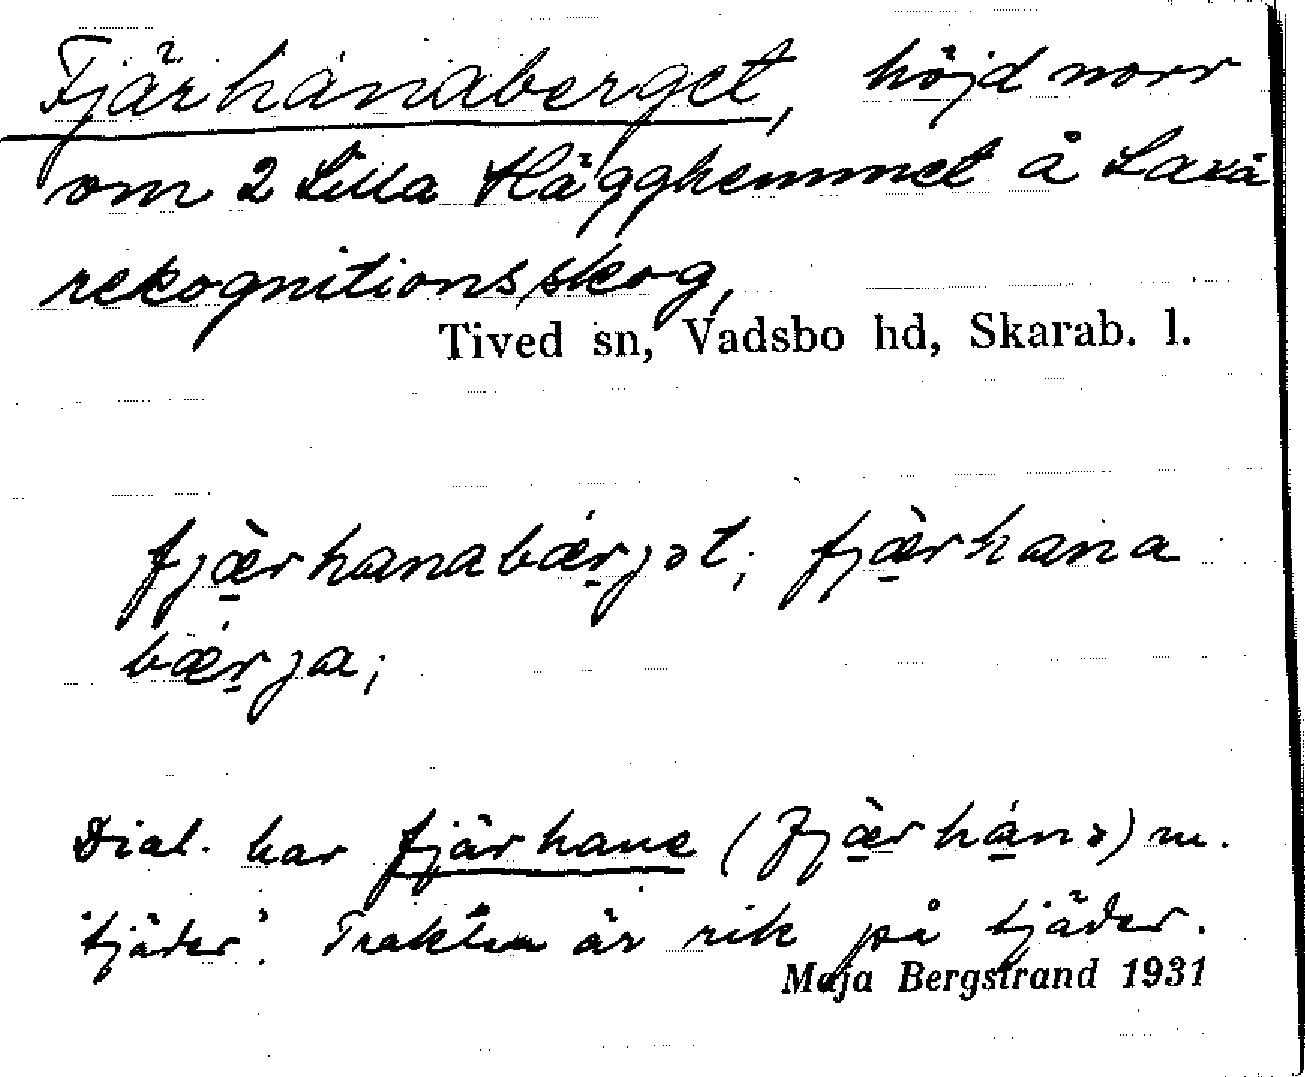 Fjärhanaberget, höjd norr
om 2 Lilla Hägghemmet å Laxå
rekognitionsskog,
Tived sn, Vadsbo hd, Skarab. l.
fjæ̀rhanabǽrjət; fjæ̀rhana
bǽrja;
Dial. har fjärhane (fjæ̀rhánə) m.
'tjäder'. Trakten är rik på tjäder.
Maja Bergstrand 1931